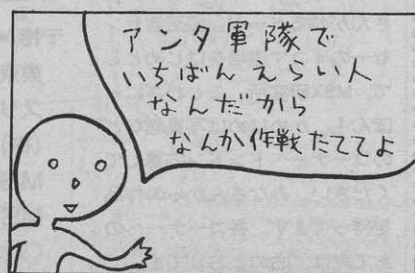 アンタ軍隊で
いちばんえらい人
なんだから
なんか作戦たててよ